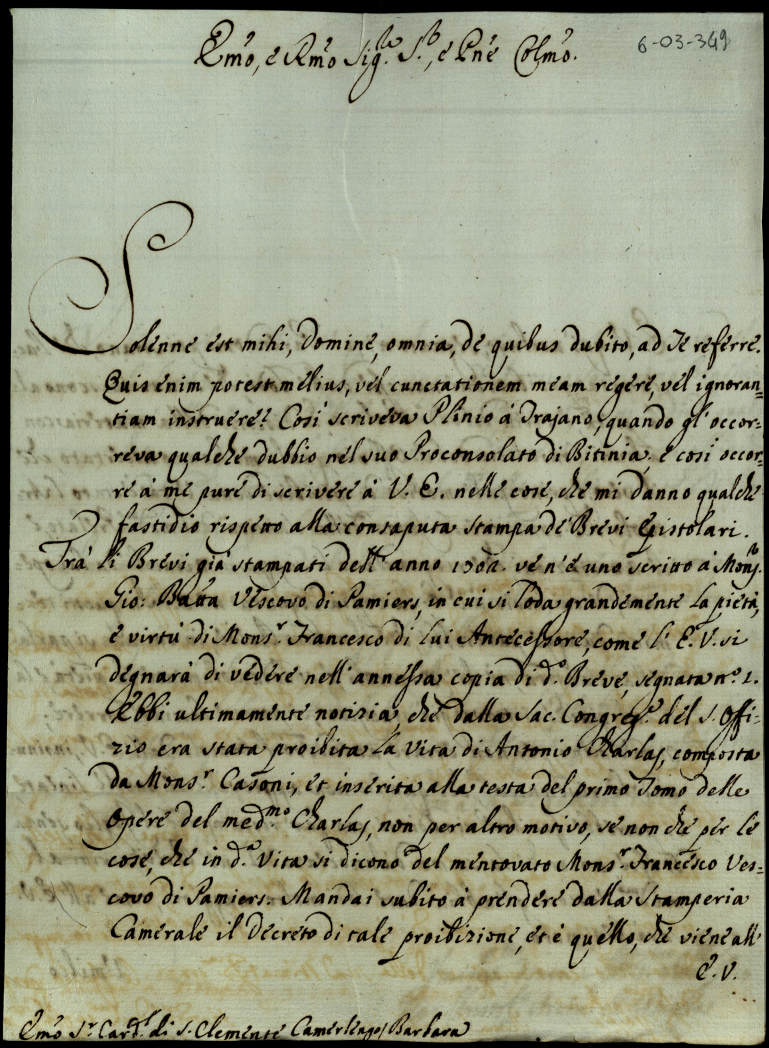 Emõ, e Rmõ Sig.re S.r, e Pñe Colmõ.
6-03-349
Solenne est mihi, Domine, omnia, de quibus dubito, ad Te referre.
Quis enim potest melius, vel cunctationem meam regere, vel ignoran=
tiam instruere? Così scriveva Plinio à Trajano, quando gl'occor=
reva qualche dubbio nel suo Proconsolato di Bitinia, e così occor=
re à me pure di scrivere à V. E. nelle cose, che mi danno qualche
fastidio rispetto alla consaputa stampa de Brevi Epistolari.
Trà li Brevi già stampati dell'anno 1702. ve n'è uno scritto à Monsr.
Gio: Batta Vescovo di Pamiers, in cui si loda grandemente la pietà,
e virtù di Monsr. Francesco di lui Antecessore, come l'E. V. si
degnarà di vedere nell'annessa copia di d.o Breve, segnata n.o 1.
Ebbi ultimamente notizia, che dalla Sac. Congreg.e del S. Offi=
zio era stata proibita la Vita di Antonio Charlas, composta
da Monsr. Casoni, et inserita alla testa del primo Tomo delle
Opere del med.mo Charlas, non per altro motivo, se non che per le
cose, che in d.a Vita si dicono del mentovato Monsr. Francesco Ves=
covo di Pamiers. Mandai subito à prendere dalla Stamperia
Camerale il Decreto di tale proibizione, et è quello, che viene all'
E. V.
Emõ Sr. Card.l di S. Clemente Camerlengo, Barbara